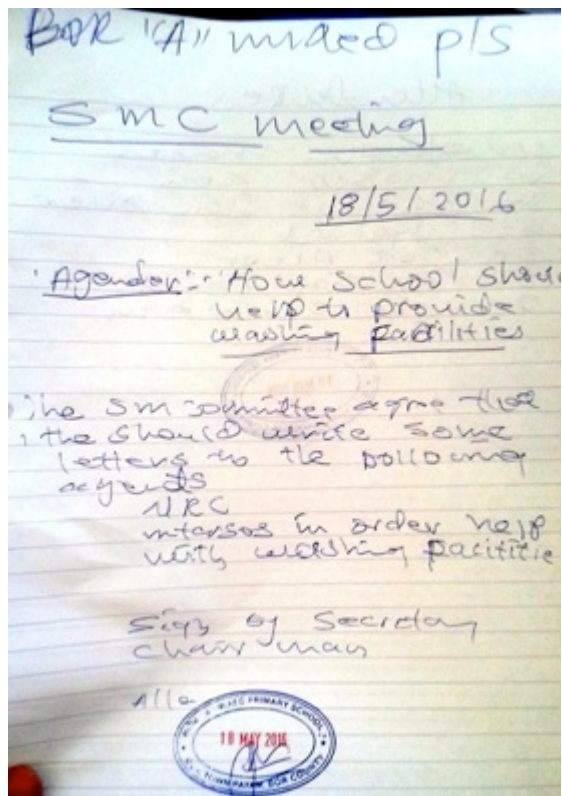 BOR "A" mixed p/s
SMC meeting
18/5/2016
Agendar:- How school shou
help to provide
washing facilities
The SM committee agree that
the should write some
letters to the following
agents
NRC
intersos in order help
with washing facilitie
Sign by Secretary
Chair man
PRIMARY SCHOOL
18 MAY 2016
BOR COUNTY